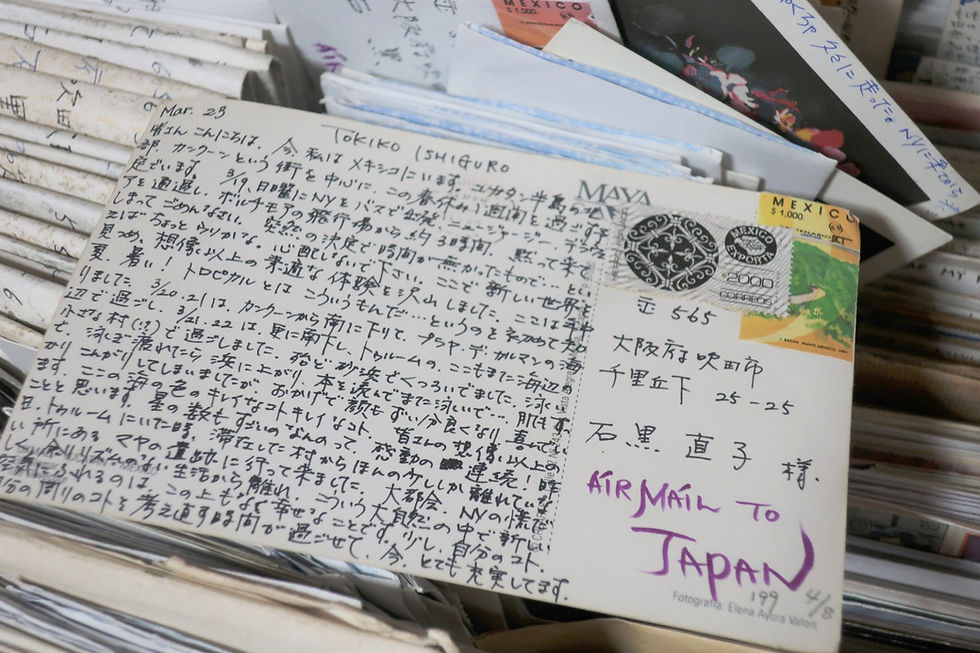 Mar. 23
TOKIKO ISHIGURO
皆さん こんにちは。今、私はメキシコにいます。ユカタン半島の北
部、カンクーンという街を中心に、この春休み1週間を過ごす予
定でいます。3/19、日曜にNYをバスで出発、ニュージャージー、デラウェ
アを通過し、ボルチモアの飛行場から約3時間。黙って来て
しまってごめんなさい。突然の決定で時間が無かったもので…とい
えばちょっとウソかな。心配しないで下さい。ここで新しい世界を
見つめ、想像以上の素適な体験を沢山しました。ここは年中
夏。暑い！トロピカルとはこういうもんだ…というのを初めて知
りました。3/20.21はカンクーンから南に下りて、プラヤ・デ・カルマンの海
辺で過ごし、3/21.22は、更に南下し、トゥルームの、ここもまた海辺の
小さな村(!?)で過ごしました。殆ど砂浜でくつろいでました。泳い
で、泳ぎ疲れたら浜に上がり、本を読んでまた泳いで…肌もすっ
かりこんがりしてしまいましたが、おかげで顔もずい分良くなり、喜んでい
ます。ここの海の色のキレイなコトキレイなコト。皆さんの想像以上の
ことと思います。星の数もすごいのなんのって。感動の連続！昨
日、トゥルームにいた時、滞在した村からほんの少ししか離れていな
い所にあるマヤの遺跡に行って来ました。大都会、NYの慌だ
しく、余りリズムのない生活から離れ、こういう大自然の中で新しい
空気にふれるのは、この上もなく幸せなことです。少し、自分のコト、
自分の周りのコトを考え直す時間が過ごせて、今、とても充実してます。
MAYA
MEXICO
$1,000.
MEXICO
EXPORTA
2000
CORREOS
〒565
大阪府吹田市
千里丘下 25-25
石黒 直子 様.
AIR MAIL TO
JAPAN
199 4/8
Fotografía: Elena Ayora Valois
MEXICO
$1,000.
大阪府
NYに来てから